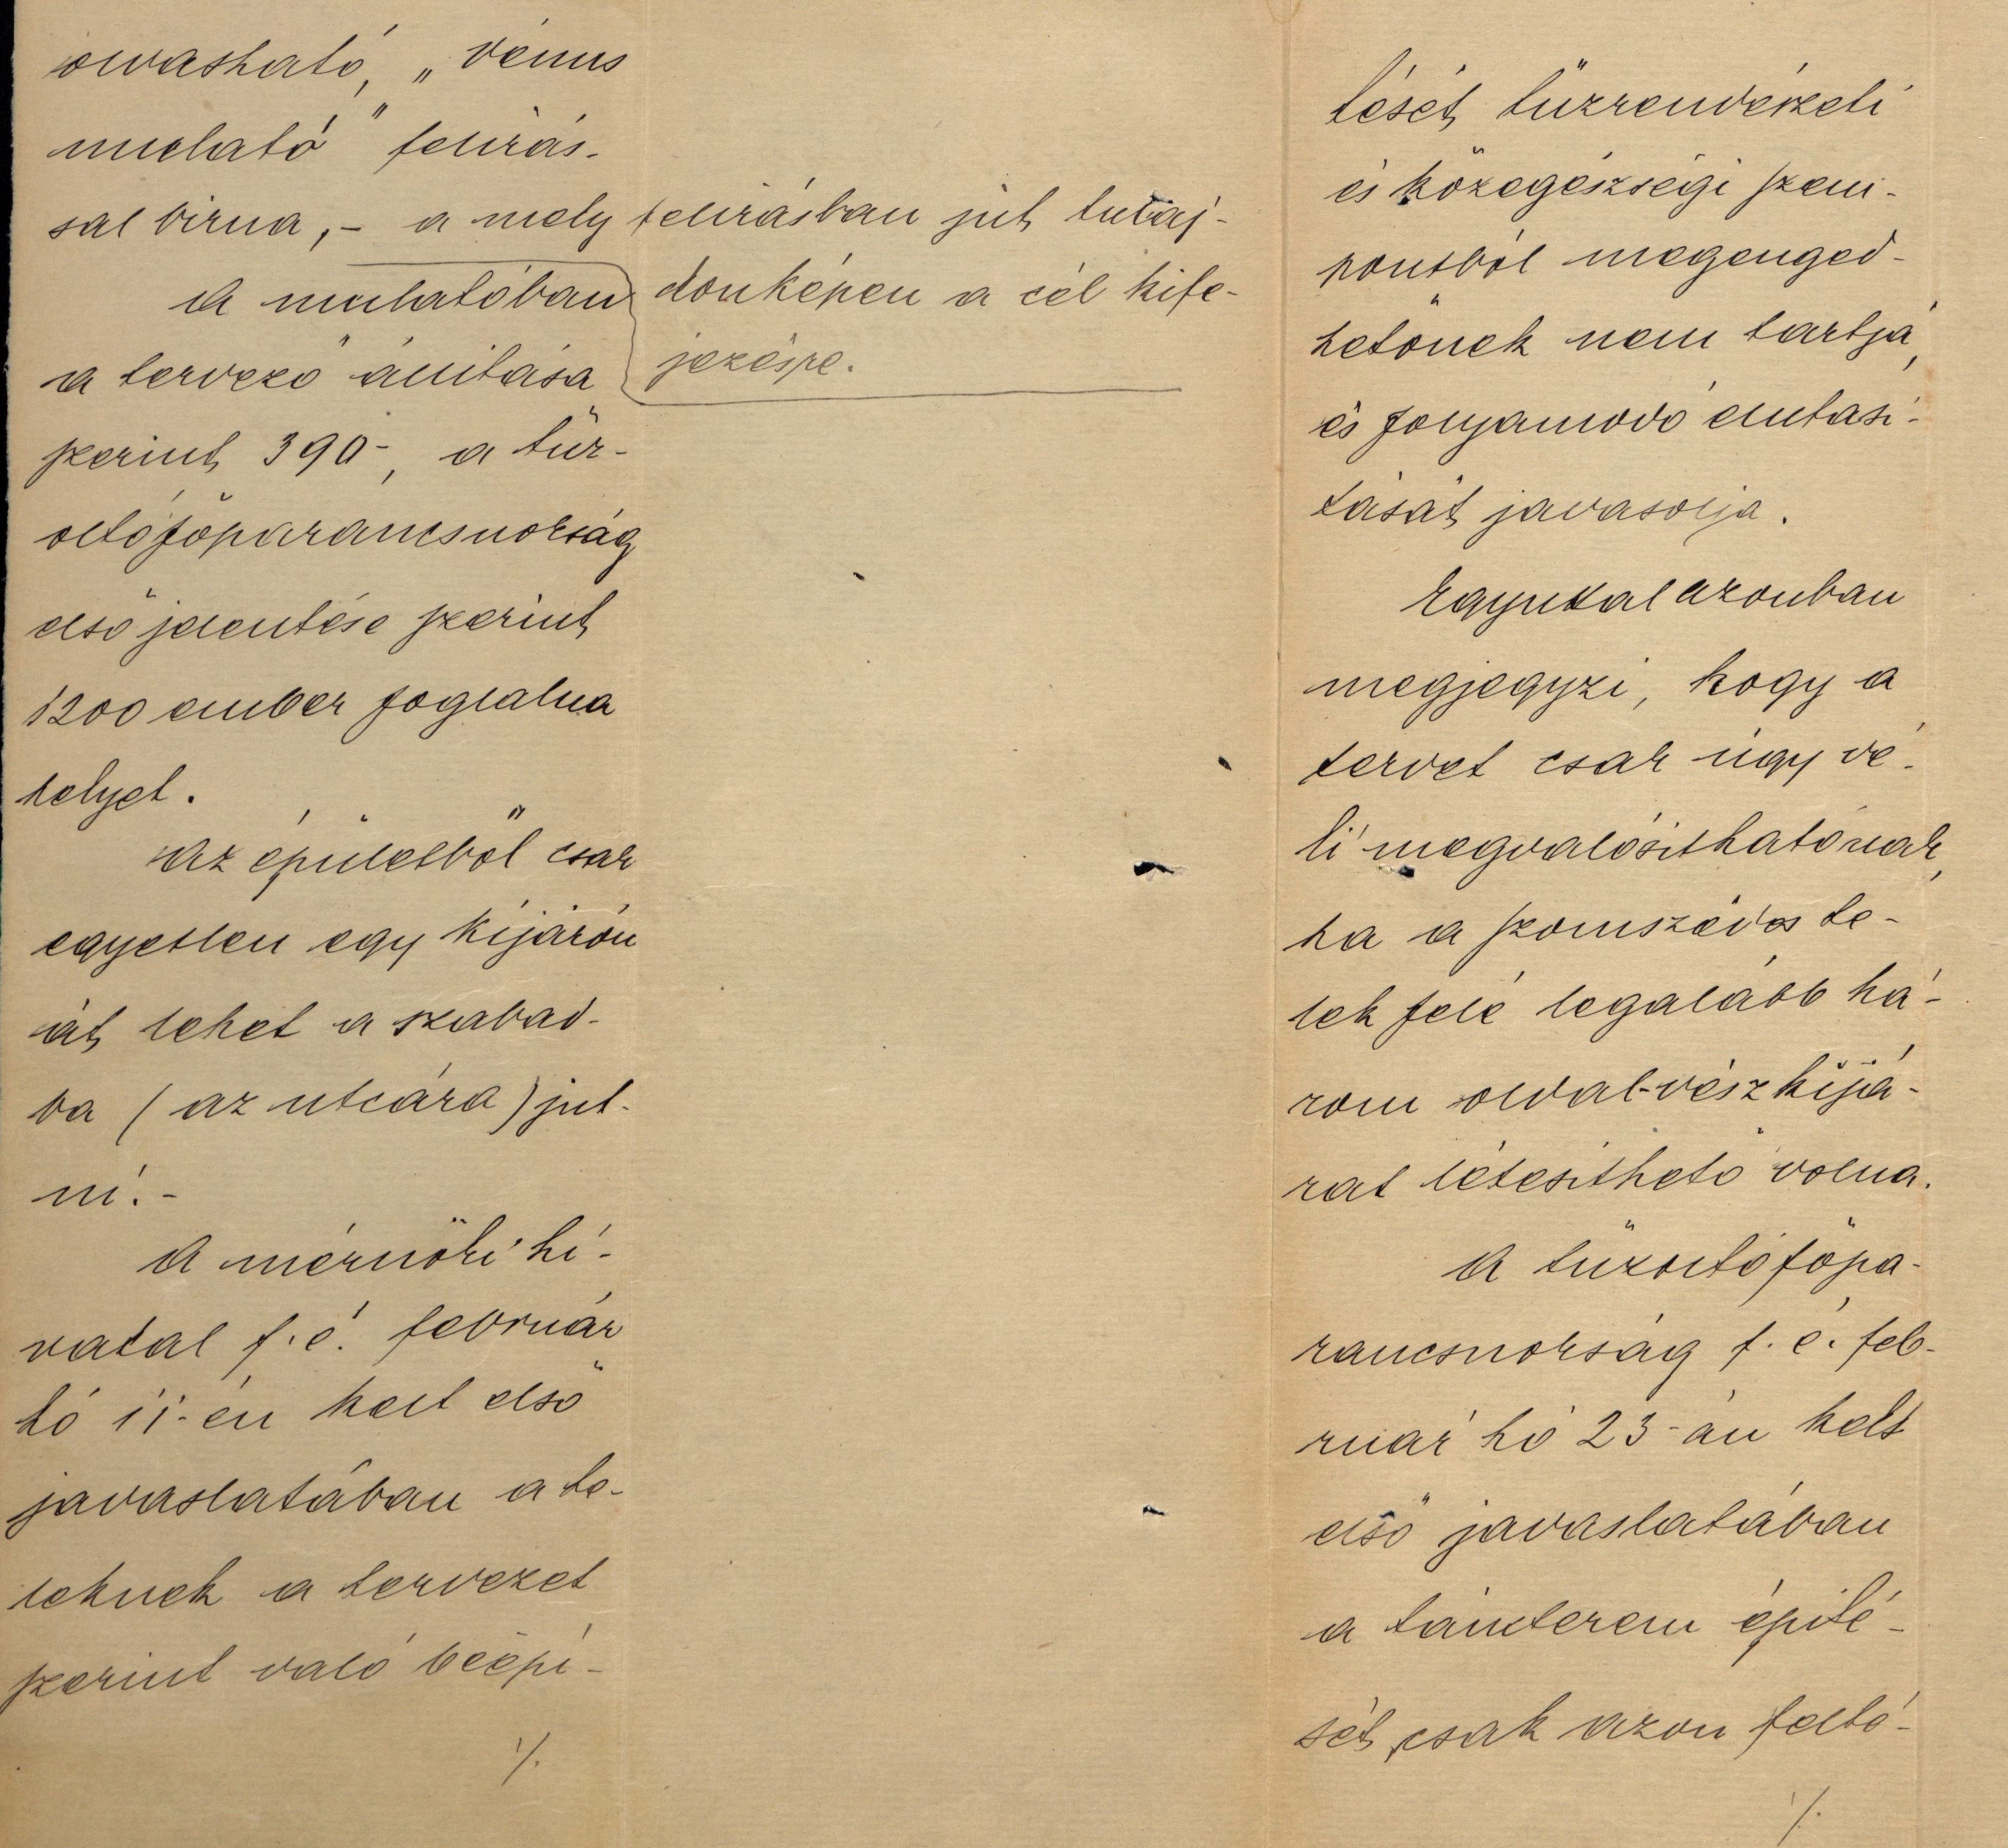 olvasható, „Vénus
mulató" felirás-
sal birna, – a mely felirásban jut tulaj-
donképen a cél kife-
jezésre.
A mulatóban
a tervező állitása
szerint 390-, a tűz-
oltófőparancsnokság
első jelentése szerint
1200 ember foglalna
helyet.
Az épületből csak
egyetlen egy kijárón
át lehet a szabad-
ba (az utcára) jut-
ni. –
A mérnöki hi-
vatal f. é. február
hó 11-én kelt első
javaslatában a te-
leknek a tervezet
szerint való beépi-
./.
tését tűzrendészeti
és közegészségi szem-
pontból megenged-
hetőnek nem tartja,
és folyamodó elutasi-
tását javasolja.
Egyuttal azonban
megjegyzi, hogy a
tervet csak úgy vé-
li megvalósithatónak,
ha a szomszédos te-
lek felé legalább há-
rom oldal-vészkijá-
rat létesithető volna.
A tűzoltófőpa-
rancsnokság f. é. feb-
ruár hó 23-án kelt
első javaslatában
a táncterem épité-
sét csak azon felté-
./.